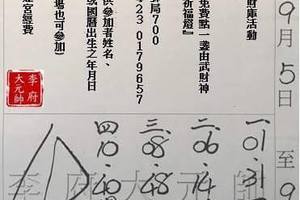 9月5日至9
財庫活動
免費點一盞由武財神
祈福燈』
局700
23 0179657
供參加者姓名、
或國曆出生之年月日
場也可參加)
宮經費
李府
大元帥
一01.31
二06.14
三08.48
四10.40
李府大元帥